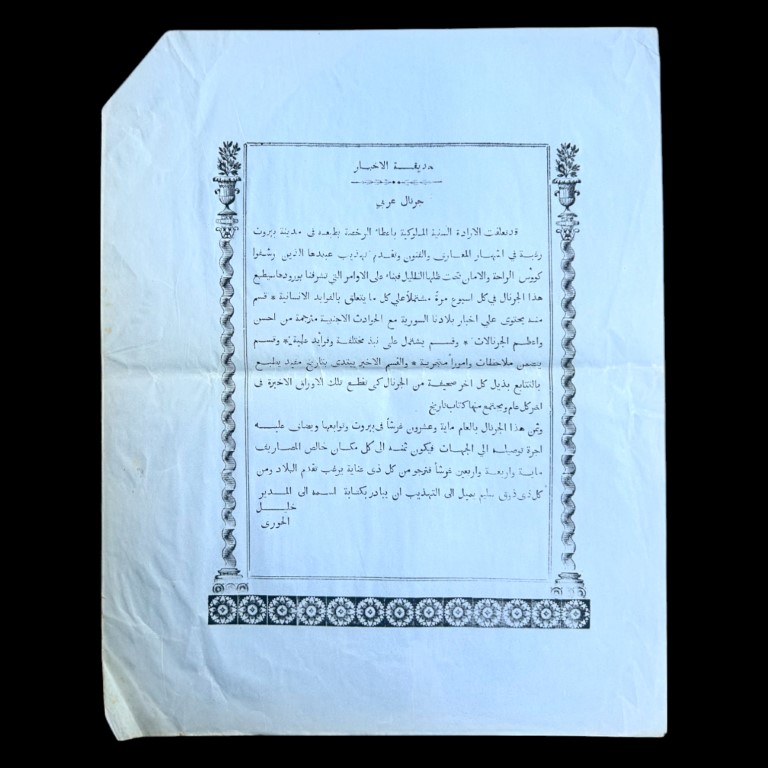 حديقة الاخبار
جرنال عربي
قد تعلقت الارادة السنية الملوكية باعطاء الرخصة بطبعه في مدينة بيروت
رغبة في اشهار المعارف والفنون وتقديم تهذيب عبيدها الذين رشفوا
كووس الراحة والامان تحت ظلها الظليل فبناء على الاوامر التي تشرفنا بورودها سيطبع
هذا الجرنال في كل اسبوع مرة مشتملاً على كل ما يتعلق بالفوايد الانسانية * قسم
منه يحتوي على اخبار بلادنا السورية مع الحوادث الاجنبية مترجمة من احسن
واعظم الجرنالات * وقسم يشتمل على نبذ مختلفة وفوايد علمية * وقسم
يتضمن ملاحظات وامورا متجرية * والقسم الاخير يبتدى بتاريخ مفيد يطبع
بالتتابع بذيل كل اخر صحيفة من الجرنال كى تقطع تلك الاوراق الاخيرة في
اخر كل عام ويجتمع منها كتاب تاريخ
وثمن هذا الجرنال بالعام ماية وعشرون غرشاً في بيروت وتوابعها ويضاف عليه
اجرة توصيله الى الجهات فيكون ثمنه الى كل مكان خالص المصاريف
ماية واربعة واربعين غرشاً فنرجو من كل ذى عناية يرغب تقدم البلاد ومن
كل ذى ذوق سليم يميل الى التهذيب ان يبادر بكتابة اسمه الى المدير
خليل
الخورى